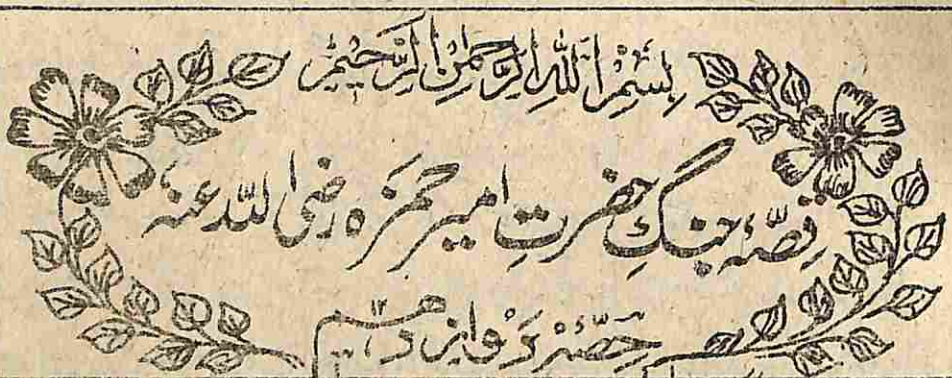 بِسْمِ اللهِ الرَّحْمٰنِ الرَّحِيْمِ
قصّۂ جنگِ حضرتِ امیر حمزَه رضی اللہ عنہ
حصّۂ دَوازدهیم ۱۲